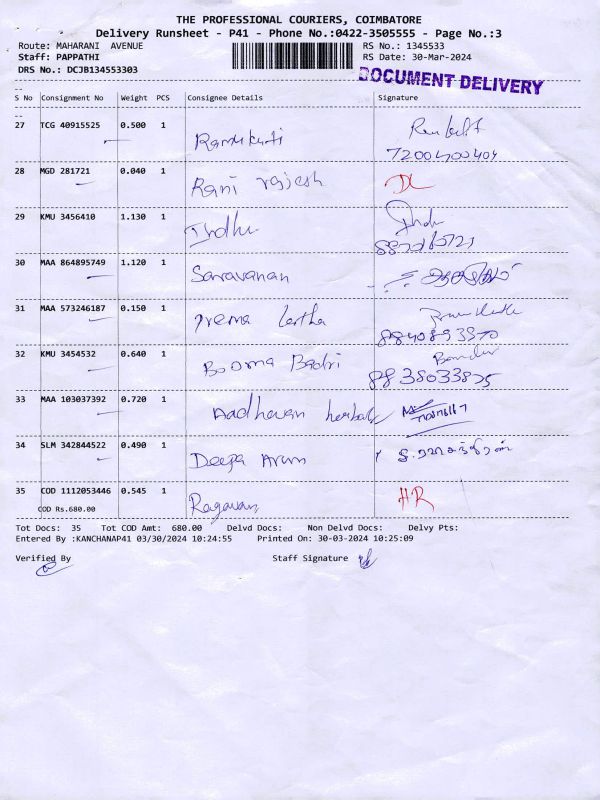 THE PROFESSIONAL COURIERS, COIMBATORE
Delivery Runsheet - P41 - Phone No.:0422-3505555 - Page No.:3
Route: MAHARANI AVENUE RS No.: 1345533
Staff: PAPPATHI RS Date: 30-Mar-2024
DRS No.: DCJB134553303
DOCUMENT DELIVERY
--
S No Consignment No Weight PCS Consignee Details Signature
--
27 TCG 40915525 0.500 1 Ramukutti
7200400404
28 MGD 281721 0.040 1 Rani rajesh DL
29 KMU 3456410 1.130 1 Indhu Indu
30 MAA 864895749 1.120 1 Saravanan
31 MAA 573246187 0.150 1 Prema latha
8840893970
32 KMU 3454532 0.640 1 Booma Badri
8838033825
33 MAA 103037392 0.720 1 Aadhavan herbals
34 SLM 342844522 0.490 1 Deepa Arun
35 COD 1112053446 0.545 1 Ragavan HR
COD Rs.680.00
Tot Docs: 35 Tot COD Amt: 680.00 Delvd Docs: Non Delvd Docs: Delvy Pts:
Entered By :KANCHANAP41 03/30/2024 10:24:55 Printed On: 30-03-2024 10:25:09
Verified By Staff Signature